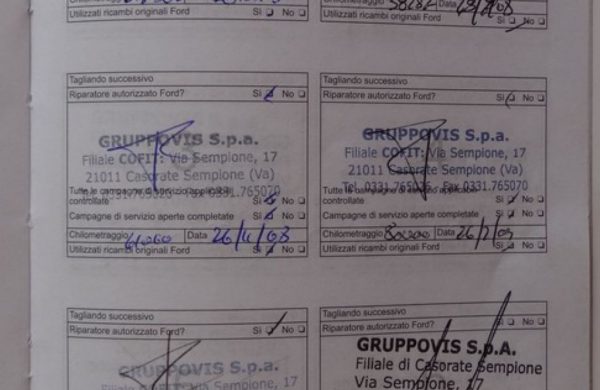 Chilometraggio 58282 Data
Utilizzati ricambi originali Ford Sì No
Utilizzati ricambi originali Ford Sì No
Tagliando successivo
Riparatore autorizzato Ford? Sì No
GRUPPOVIS S.p.a.
Filiale COFIT: Via Sempione, 17
21011 Casorate Sempione (Va)
Tutte le campagne di servizio applicabili
controllate Sì No
Campagne di servizio aperte completate Sì No
Chilometraggio Data 26/4/08
Utilizzati ricambi originali Ford Sì No
Tagliando successivo
Riparatore autorizzato Ford? Sì No
GRUPPOVIS S.p.a.
Filiale COFIT: Via Sempione, 17
21011 Casorate Sempione (Va)
Tel. 0331.765026 Fax 0331.765070
controllate Sì No
Campagne di servizio aperte completate Sì No
Chilometraggio Data 26/2/09
Utilizzati ricambi originali Ford Sì No
Tagliando successivo
Riparatore autorizzato Ford? Sì No
GRUPPOVIS S.p.a.
Filiale COFIT: Via Sempione, 17
Tagliando successivo
Riparatore autorizzato Ford? Sì No
GRUPPOVIS S.p.A.
Filiale di Casorate Sempione
Via Sempione, 17